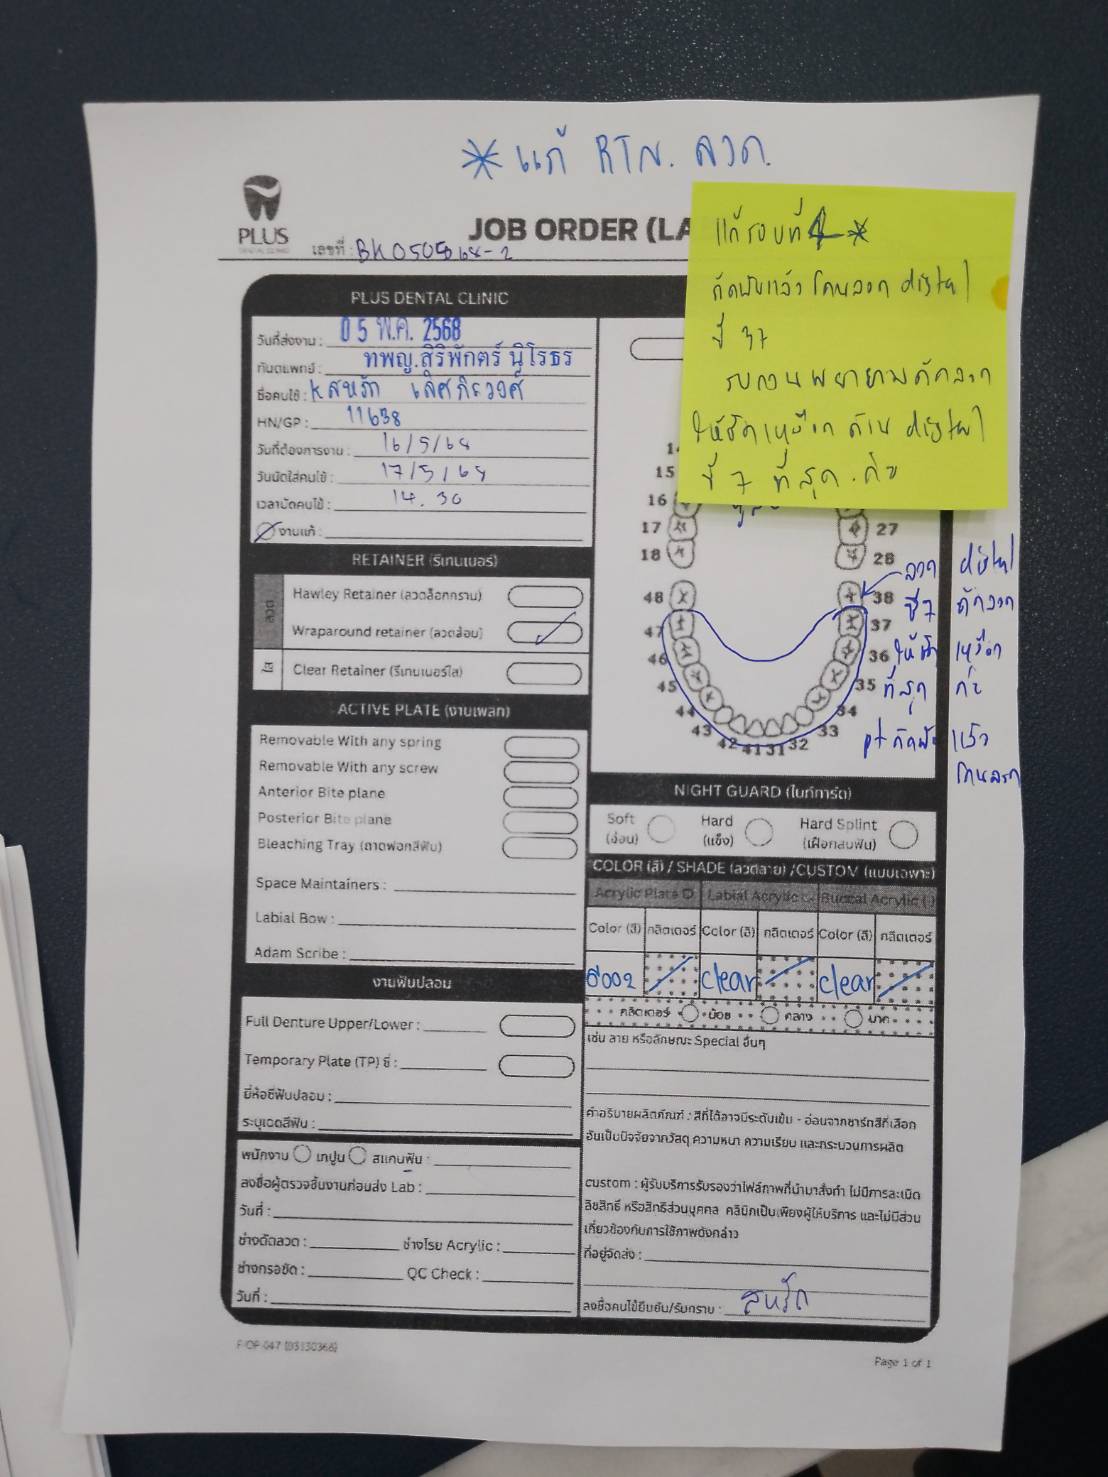 * แก้ RTN. ลวด.
PLUS
DENTAL CLINIC
JOB ORDER (LA
เลขที่ : BK050568-2
แก้รอบที่ 4 *
กัดฟันแล้วโดนลวด distal
ซี่ 37
รบกวนพยายามดัดลวด
ให้ชิดเหงือก ด้าน distal
ซี่ 7 ที่สุด ค่ะ
PLUS DENTAL CLINIC
วันที่ส่งงาน : 05 พ.ค. 2568
ทันตแพทย์ : ทพญ.สิริพักตร์ นิโรธร
ชื่อคนไข้ : K สหรัก เลิศภิระวงศ์
HN/GP : 11638
วันที่ต้องการงาน : 16/5/68
วันนัดใส่คนไข้ : 17/5/68
เวลานัดคนไข้ : 14.30
งานแก้ :
RETAINER (รีเทนเนอร์)
ลวด
Hawley Retainer (ลวดล็อกกราม)
Wraparound retainer (ลวดล้อม)
ใส
Clear Retainer (รีเทนเนอร์ใส)
ACTIVE PLATE (งานเพลท)
Removable With any spring
Removable With any screw
Anterior Bite plane
Posterior Bite plane
Bleaching Tray (ถาดฟอกสีฟัน)
Space Maintainers :
Labial Bow :
Adam Scribe :
งานฟันปลอม
Full Denture Upper/Lower :
Temporary Plate (TP) ซี่ :
ยี่ห้อซี่ฟันปลอม :
ระบุเฉดสีฟัน :
พนักงาน เทปูน สแกนฟัน :
ลงชื่อผู้ตรวจชิ้นงานก่อนส่ง Lab :
วันที่ :
ช่างดัดลวด : ช่างโรย Acrylic :
ช่างกรอขัด : QC Check :
วันที่ :
15
16
17 27
18 28
48 38
47 37
46 36
45 35
44 34
43 33
42 41 31 32
ลวด distal
ซี่ 7 ดัดลวด
ให้ชิด เหงือก
ที่สุด ค่ะ
pt กัดฟัน แล้ว
โดนลวด
NIGHT GUARD (ไนท์การ์ด)
Soft (อ่อน) Hard (แข็ง) Hard Splint (เฝือกสบฟัน)
COLOR (สี) / SHADE (ลวดลาย) /CUSTOM (แบบเฉพาะ)
Acrylic Plate Labial Acrylic Buccal Acrylic
Color (สี) กลิตเตอร์ Color (สี) กลิตเตอร์ Color (สี) กลิตเตอร์
clear clear
กลิตเตอร์ น้อย กลาง มาก
เช่น ลาย หรือลักษณะ Special อื่นๆ
คำอธิบายผลิตภัณฑ์ : สีที่ได้อาจมีระดับเข้ม - อ่อนจากชาร์ทสีที่เลือก
อันเป็นปัจจัยจากวัสดุ ความหนา ความเรียบ และกระบวนการผลิต
custom : ผู้รับบริการรับรองว่าไฟล์ภาพที่นำมาสั่งทำ ไม่มีการละเมิด
ลิขสิทธิ์ หรือสิทธิส่วนบุคคล คลินิกเป็นเพียงผู้ให้บริการ และไม่มีส่วน
เกี่ยวข้องกับการใช้ภาพดังกล่าว
ที่อยู่จัดส่ง :
ลงชื่อคนไข้ยืนยัน/รับทราบ : สหรัก
F-OP-047 (05130368)
Page 1 of 1